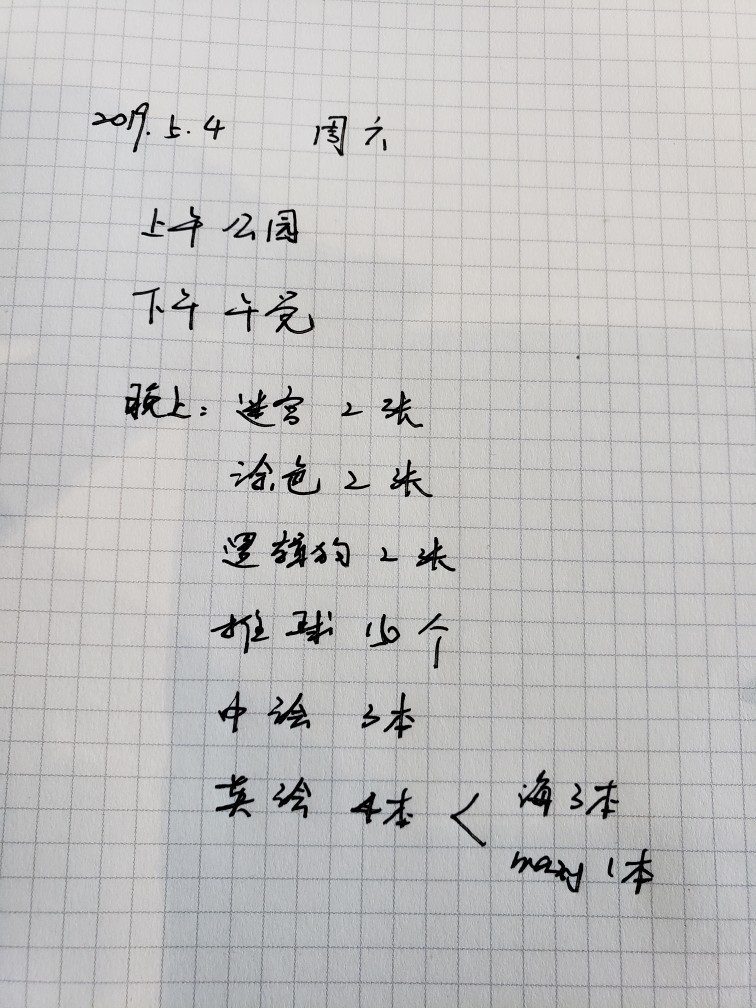 2019.5.4 周六
上午 公园
下午 午觉
晚上：迷宫 2张
涂色 2张
逻辑狗 2张
推球 150个
中绘 3本
英绘 4本 < 海3本
mazy 1本